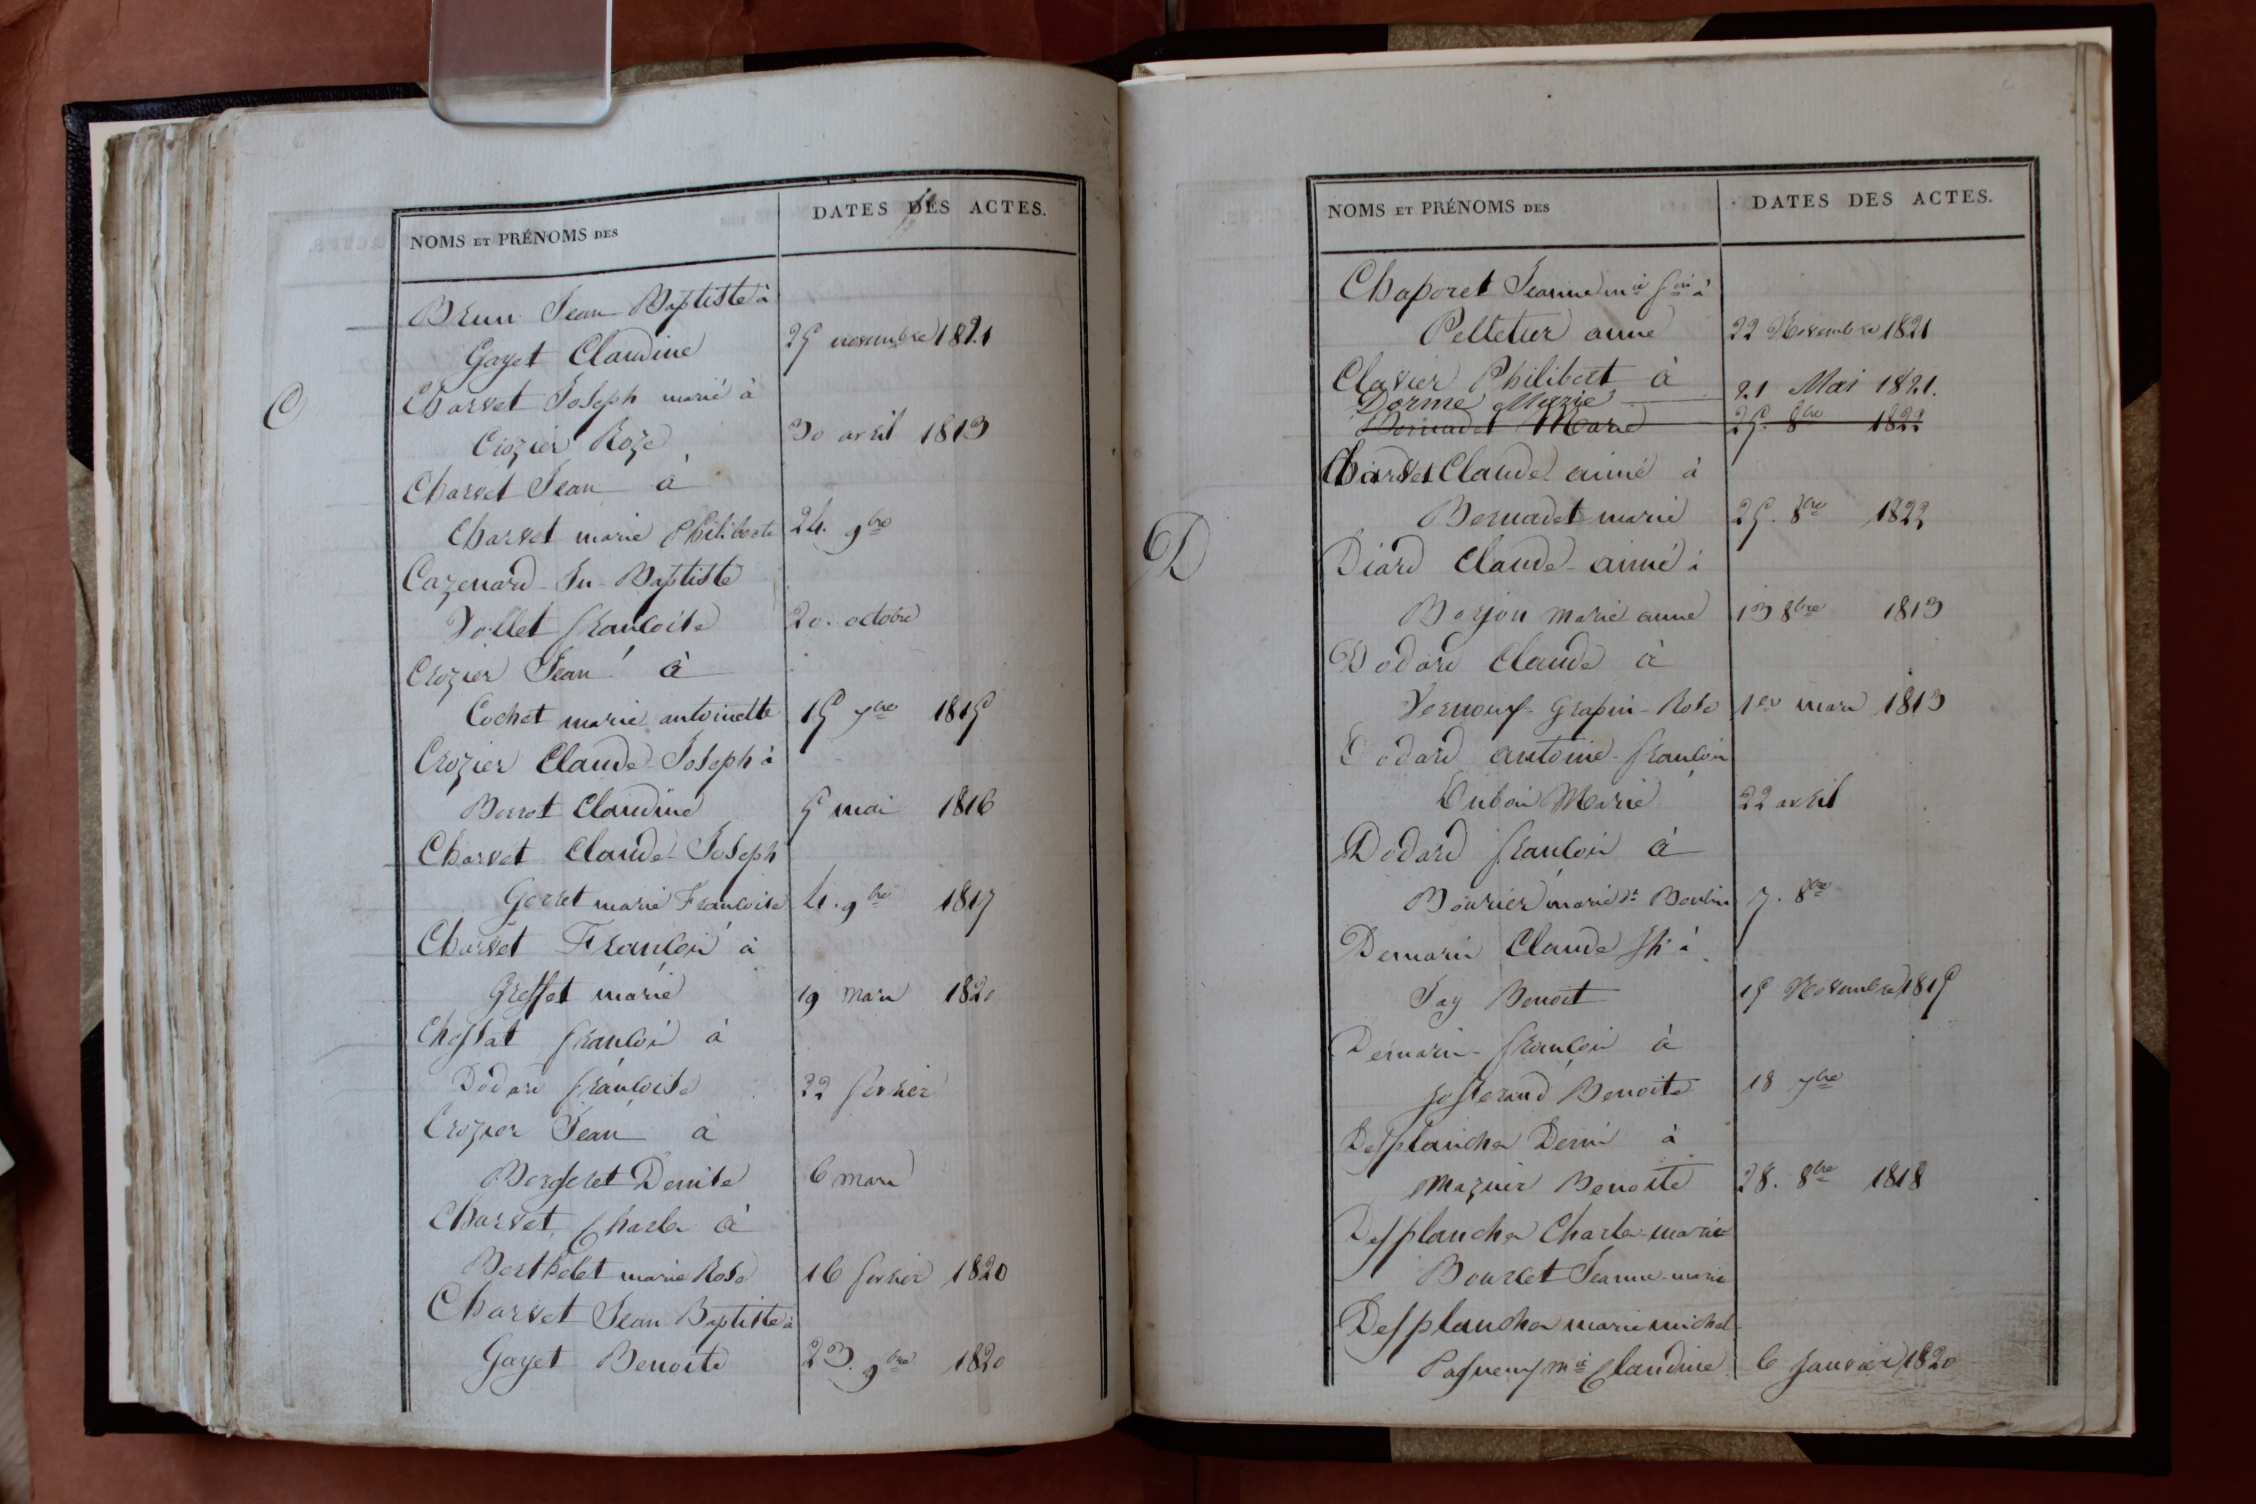 NOMS ET PRÉNOMS DES
DATES DES ACTES.
Brun Jean Baptiste à
Gayet Claudine 25 novembre 1821
C
Charvet Joseph marié à
Crozier Roze 30 avril 1813
Charvet Jean à
Charvet marie Philiberte 24. 9bre
Cazenard Jn Baptiste
Vollet francoise 20. octobre
Crozier Jean à
Cochet marie antoinette 15 7bre 1815
Crozier Claude Joseph à
Borrot Claudine 5 mai 1816
Charvet Claude Joseph
Gorret marie Francoise 4. 9bre 1817
Charvet Francois à
Greffet marie 19 mars 1820
Chossat francois à
Dodard francoise 22 fevrier
Crozier Jean à
Bergeret Denise 6 mars
Charvet Charles à
Berthelet marie Rose 16 fevrier 1820
Charvet Jean Baptiste à
Gayet Benoite 23. 9bre 1820
NOMS ET PRÉNOMS DES
DATES DES ACTES.
Chaporet Jeanne mie à
Pelletier anne 22 Novembre 1821
Clavier Philibert à 21 Mai 1821.
Dorme Marie
Bernadet Marie 25. 8bre 1822
Charvet Claude aimé à
Bernadet marie 25. 8bre 1822
D
Diard Claude aimé à
Borjon marie anne 13 8bre 1813
Dodard Claude à
Vernoux Grapin Rose 1er mars 1813
Dodard antoine francois
Dubois Marie 22 avril
Dodard francois à
Bourier marie 7. 8bre
Demaria Claude à
Jay Benoit 15 Novembre 1815
Demaria francois à
Josserand Benoite 18 7bre
Desplanches Denis à
Mazuir Benoite 28. 8bre 1818
Desplanches Charles marie
Bourcet Jeanne marie
Desplanches marie michel
mie Claudine 6 Janvier 1820